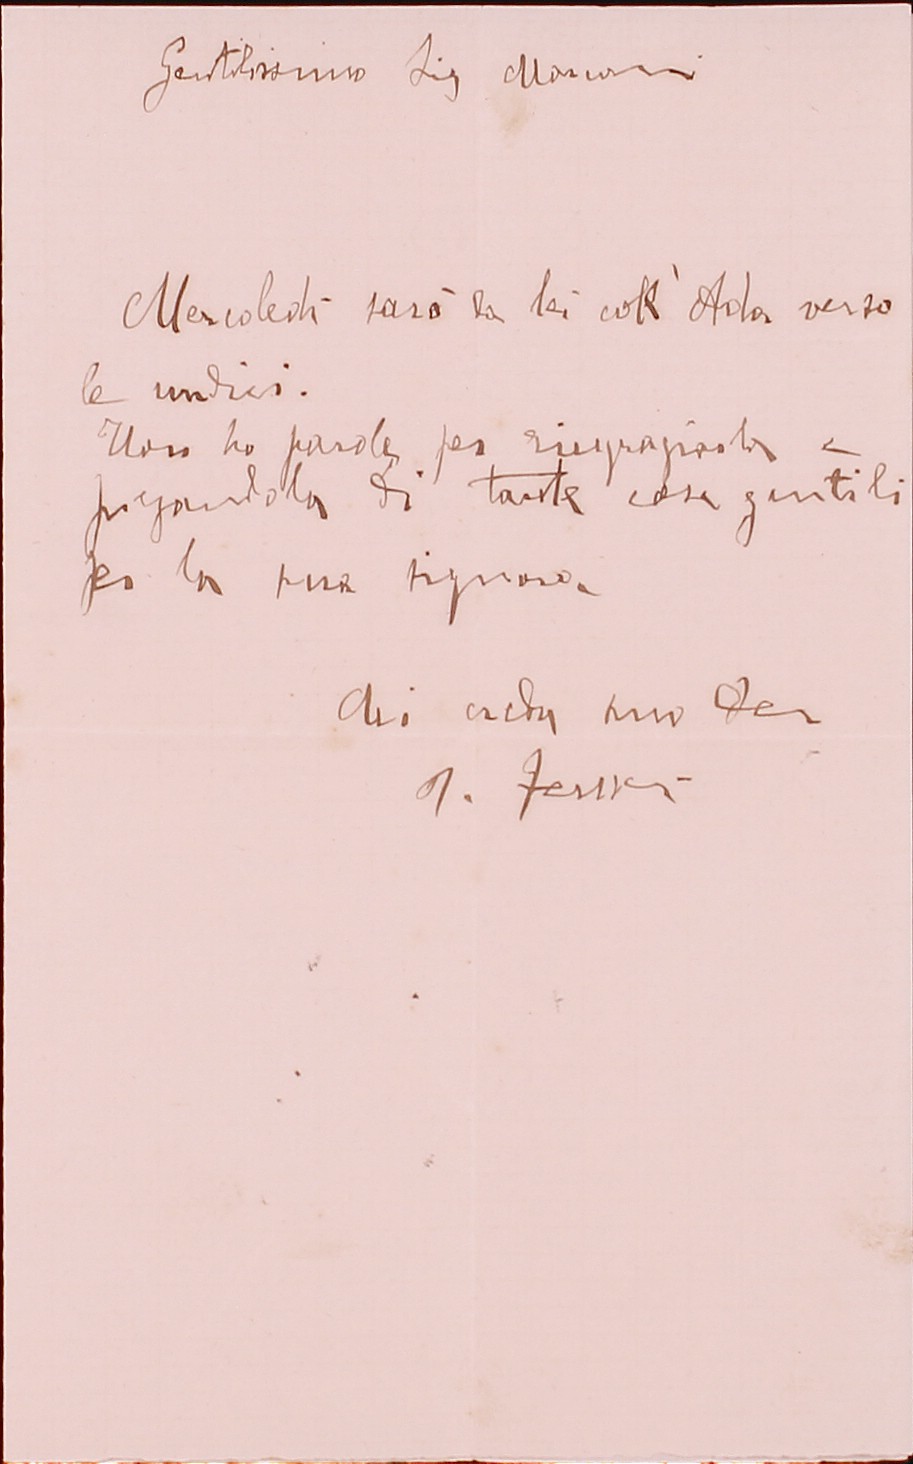 Gentilissimo Sig Marconi
Mercoledì sarò da lei coll' Ada verso
le undici.
Non ho parole per ringraziarla e
pregandola di tante cose gentili
per la sua signora.
Mi creda suo Dev